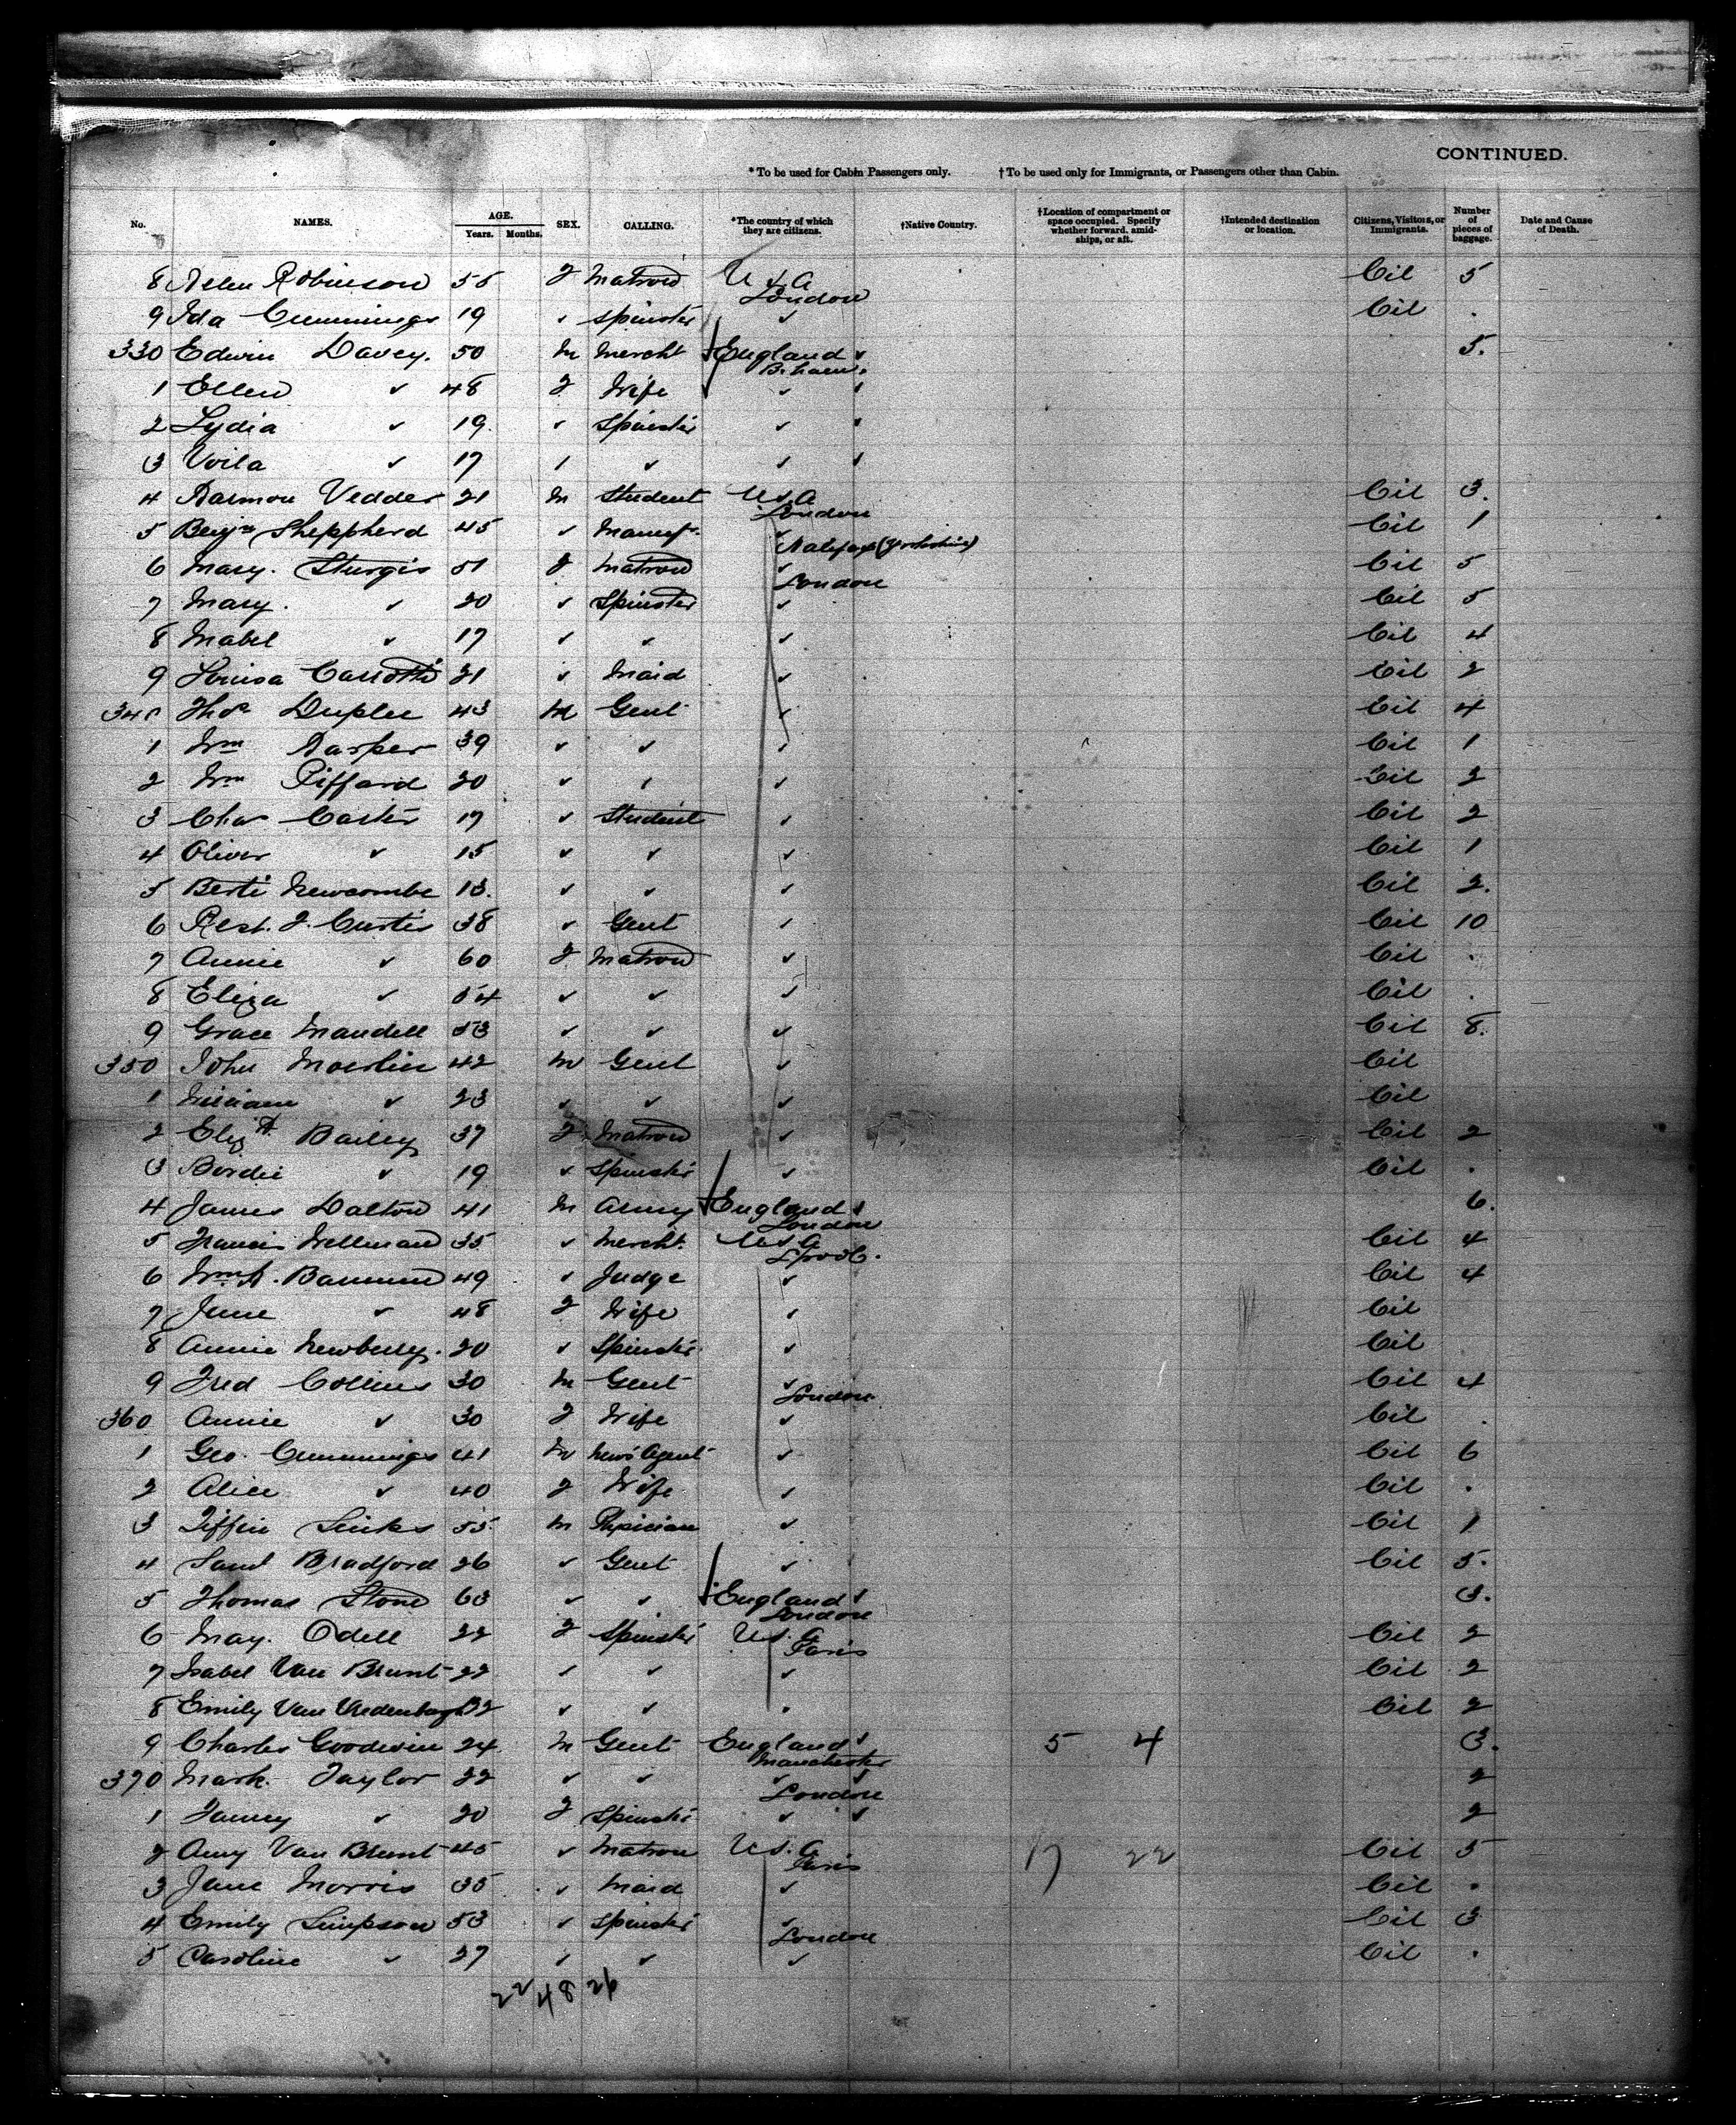 CONTINUED.
*To be used for Cabin Passengers only. †To be used only for Immigrants, or Passengers other than Cabin.
No. NAMES. AGE. Years. Months. SEX. CALLING. *The country of which they are citizens. †Native Country. †Location of compartment or space occupied. Specify whether forward, amidships, or aft. †Intended destination or location. Citizens, Visitors, or Immigrants. Number of pieces of baggage. Date and Cause of Death.
8 Helen Robinson 55 F Matron U S A Cit 5
London
9 Ida Cummings 19 " Spinster " Cit .
330 Edwin Davey. 50 M Mercht England 5.
B.ham.
1 Ellen " 48 F Wife "
2 Lydia " 19. " Spinster "
3 Voila " 17 " " "
4 Harmon Vedder 21 M Student U.S.A Cit 3.
London
5 Benjn Sheppherd 45 " Manuf. " Cit 1
Halifax (Yorkshire)
6 Mary. Sturgis 51 F Matron " Cit 5
London
7 Mary. " 20 " Spinster " Cit 5
8 Mabel " 17 " " " Cit 4
9 Louisa 21 " Maid " Cit 2
340 Thos Duplee 43 M Gent " Cit 4
1 Wm Harper 39 " " " Cit 1
2 Wm Piffard 20 " " " Cit 2
3 Chas Carter 17 " Student " Cit 2
4 Oliver " 15 " " " Cit 1
5 Bertie Newcombe 13. " " " Cit 2.
6 Curtis 38 " Gent " Cit 10
7 Annie " 60 F Matron " Cit .
8 Eliza " 54 " " " Cit .
9 Grace Mandell 53 " " " Cit 8.
350 John 42 M Gent " Cit
1 " 23 " " " Cit
2 Elizth Bailey 37 F Matron " Cit 2
3 Birdie " 19 " Spinster " Cit .
4 James Dalton 41 M Army England 6.
London
5 Francis Wellman 35 " Mercht. U S A Cit 4
L'pool.
6 Wm H. Barnum 49 " Judge " Cit 4
7 June " 48 F Wife " Cit
8 Annie Newberry. 20 " Spinster " Cit
9 Fred Collins 30 M Gent " Cit 4
London.
360 Annie " 30 F Wife " Cit .
1 Geo. Cummings 41 M News Agent " Cit 6
2 Alice " 40 F Wife " Cit .
3 Tiffin Sinks 55. M Physician " Cit 1
4 Saml Bradford 26 " Gent " Cit 5.
5 Thomas Stone 63 " " England 3.
London
6 May. Odell 22 F Spinster U.S.A Cit 2
Paris
7 Isabel Van Brunt 22 " " " Cit 2
8 Emily Van 32 " " " Cit 2
9 Charles Goodwin 24. M Gent England 5 4 3.
Manchester
370 Mark. Taylor 22 " " " 2
London
1 Fanny " 20 F Spinster " 2
2 Amy Van Brunt 45 " Matron U.S.A 17 22 Cit 5
Paris
3 Jane Morris 35 " Maid " Cit .
4 Emily Simpson 53 " Spinster " Cit 3
London
5 Caroline " 37 " " " Cit .
22 48 26